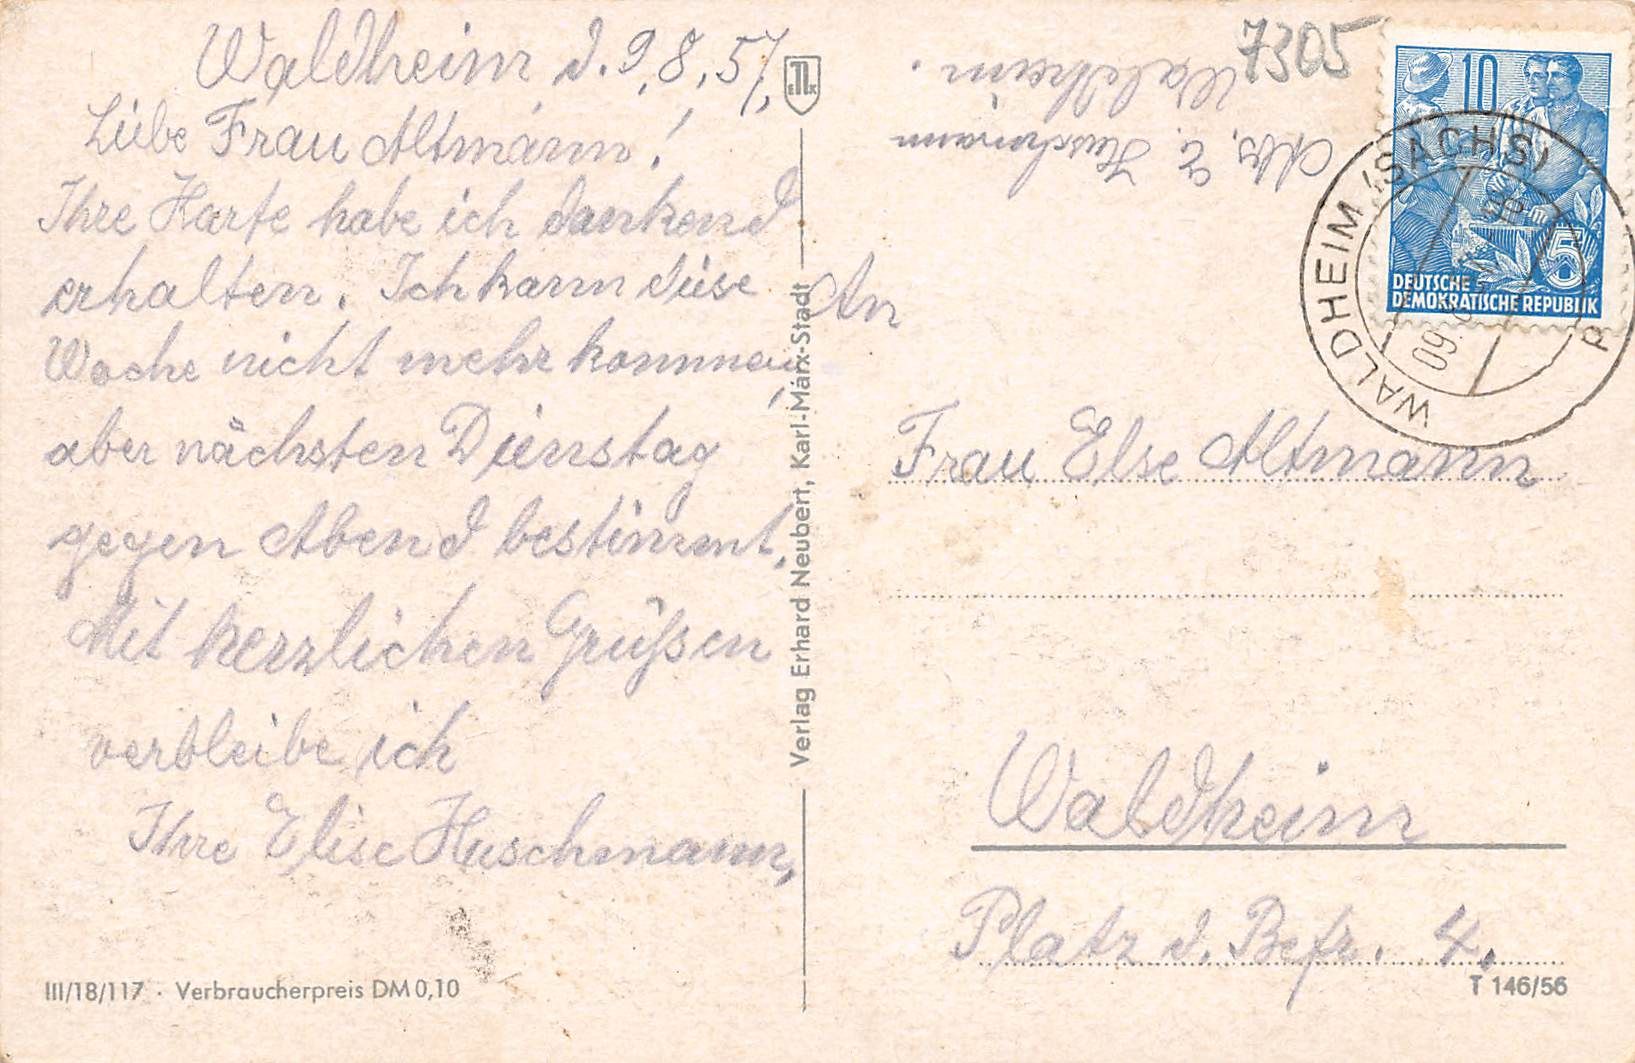 Waldheim d. 9.8.57.
Liebe Frau Altmann!
Ihre Karte habe ich dankend
erhalten. Ich kann diese
Woche nicht mehr kommen,
aber nächsten Dienstag
gegen Abend bestimmt.
Mit herzlichen Grüßen
verbleibe ich
Ihre Elise Huschmann,
III/18/117 · Verbraucherpreis DM 0,10
Verlag Erhard Neubert, Karl-Marx-Stadt
Abs. E. Huschmann
Waldheim.
7305
10
5
DEUTSCHE
DEMOKRATISCHE REPUBLIK
WALDHEIM (SACHS)
An
Frau Else Altmann
Waldheim
Platz d. Befr. 4.
T 146/56